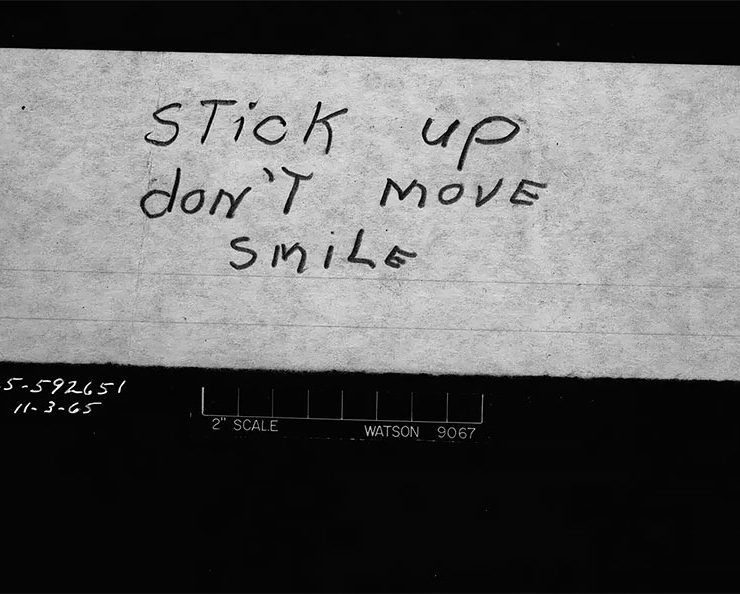 STicK up
don'T MOVE
SMiLE
5-592651
11-3-65
2" SCALE WATSON 9067